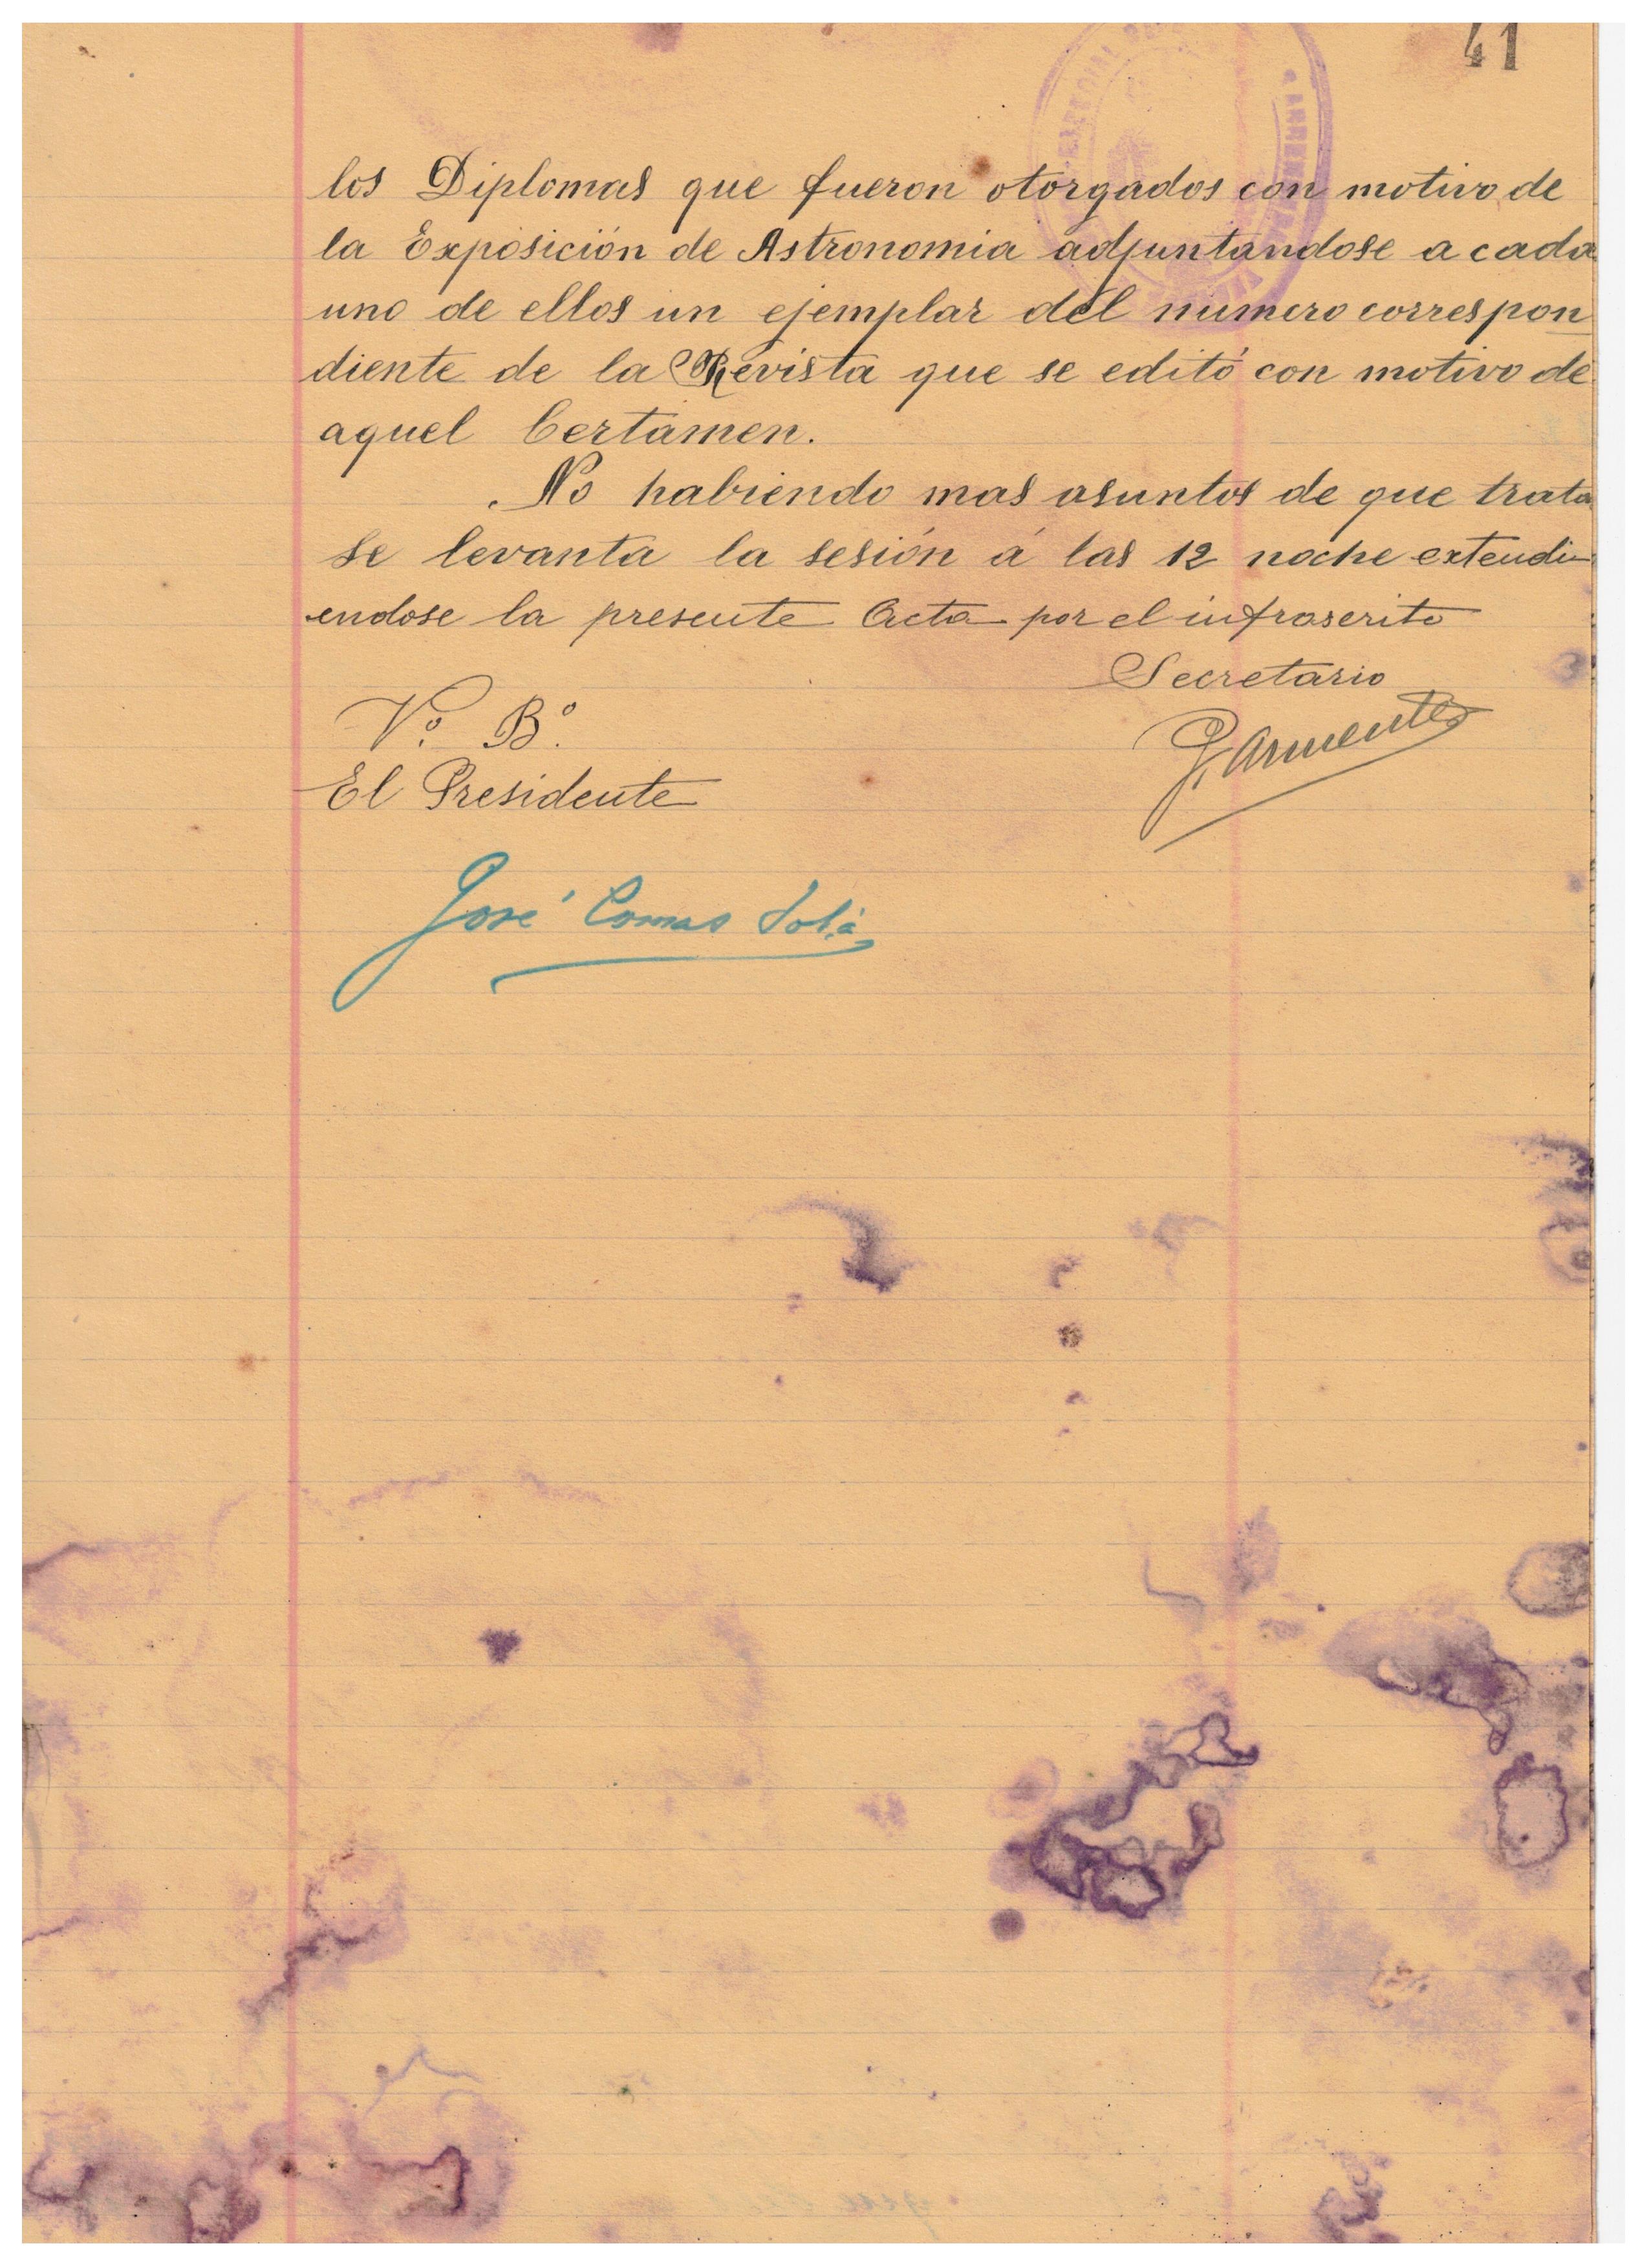 41
los Diplomas que fueron otorgados con motivo de
la Exposición de Astronomia adjuntandose a cada
uno de ellos un ejemplar del numero correspon
diente de la Revista que se editó con motivo de
aquel Certamen.
No habiendo mas asuntos de que trata
se levanta la sesión á las 12 noche extendi-
endose la presente Acta por el infrascrito
Secretario
Vº. Bº.
El Presidente
Armenter
José Comas Solá